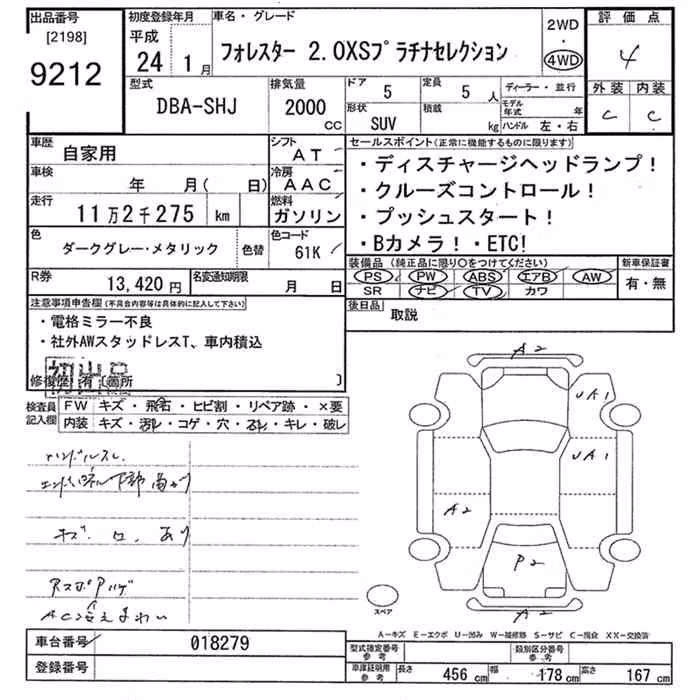 出品番号 初度登録年月 車名・グレード 2WD 評価点
[2198] 平成 ・
9212 24 1月 フォレスター 2.0XSプラチナセレクション 4WD 4
型式 排気量 ドア 5 定員 5人 ディーラー・並行 外装 内装
DBA-SHJ 2000 CC 形状 SUV 積載 kg モデル年式 年 C C
ハンドル 左・右
車歴 自家用 シフト AT セールスポイント(正常に機能するものに限ります)
車検 年 月( 日) 冷房 AAC ・ディスチャージヘッドランプ!
走行 11万2千275 km 燃料 ガソリン ・クルーズコントロール!
・プッシュスタート!
色 ダークグレー・メタリック 色替 色コード 61K ・Bカメラ!・ETC!
装備品(純正品に限り○をつけてください) 新車保証書
R券 13,420円 名変通知期限 月 日 PS PW ABS エアB AW 有・無
SR ナビ TV カワ
注意事項申告欄(不具合内容等は具体的に記入して下さい) 後日品 取説
・電格ミラー不良
・社外AWスタッドレスT、車内積込
初出品
修復歴 有 〔箇所 〕
検査員記入欄 FW キズ・飛石・ヒビ割・リペア跡・×要
内装 キズ・汚レ・コゲ・穴・スレ・キレ・破レ
A2
UA1
ハンドルスレ
UA1
A2
キズ.ロ.あり
P2
スペア
A2
A-キズ E-エクボ U-凹み W-補修跡 S-サビ C-腐食 XX-交換済
車台番号 018279 型式指定番号 参考 類別区分番号 参考
登録番号 車庫証明用 参考 長さ 456 cm 幅 178 cm 高さ 167 cm